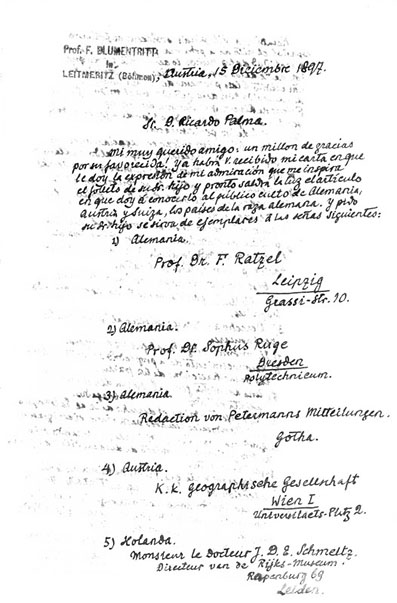 Prof. F. BLUMENTRITT
in
LEITMERITZ (Böhmen), Austria, 15 Diciembre 1897.
Sr. D. Ricardo Palma.
Mi muy querido amigo: un millon de gracias
por su favorecida! Ya habrá V. recibido mi carta en que
le doy la expresión de mi admiración que me inspira
el folleto de su Sr. hijo y pronto saldrá la luz el artículo
en que doy á conocerlo al público culto de Alemania,
Austria y Suiza, los países de la raza alemana. Y pido
su Sr. hijo se sirva de ejemplares á las señas siguientes:
1) Alemania.
Prof. Dr. F. Ratzel
Leipzig
Grassi-Str. 10.
2) Alemania.
Prof. Dr. Sophus Ruge
Dresden
Polytechnicum.
3) Alemania.
Redaction von Petermanns Mitteilungen.
Gotha.
4) Austria.
K. k. geographische Gesellschaft
Wien I
Universitaets-Platz 2.
5) Holanda.
Monsieur le Docteur J. D. E. Schmeltz.
Directeur van de Rijks-Museum.
Rapenburg 69
Leiden.